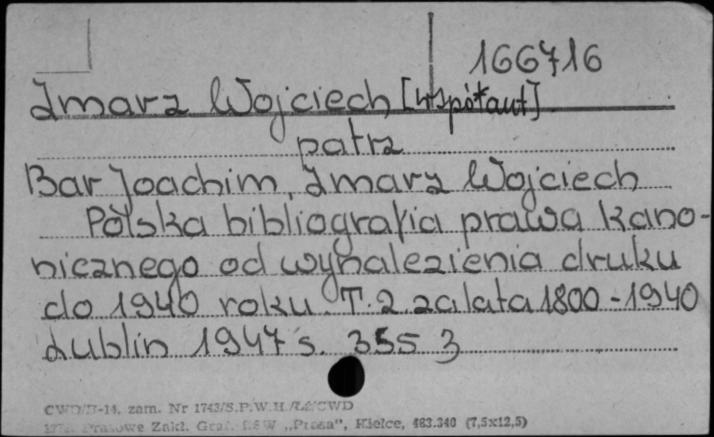 166716
Zmarz Wojciech [współaut]
patrz
Bar Joachim, Zmarz Wojciech
Polska bibliografia prawa kano-
nicznego od wynalezienia druku
do 1940 roku. T. 2 za lata 1800-1940
Lublin 1947 s. 355 3
CWD/B-14, zam. Nr 1743/S.P.W.H./Łó/CWD
Prasowe Zakł. Graf. RSW „Prasa", Kielce, 483.340 (7,5x12,5)